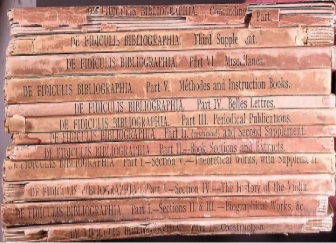 DE FIDICULIS BIBLIOGRAPHIA. Concluding Part.
DE FIDICULIS BIBLIOGRAPHIA. Third Supple
DE FIDICULIS BIBLIOGRAPHIA. Part VI.
DE FIDICULIS BIBLIOGRAPHIA. Part V. Methodes and Instruction Books.
DE FIDICULIS BIBLIOGRAPHIA. Part IV. Belles Lettres.
DE FIDICULIS BIBLIOGRAPHIA. Part III. Periodical Publications.
DE FIDICULIS BIBLIOGRAPHIA. Part II. and Second Supplement.
DE FIDICULIS BIBLIOGRAPHIA. Part II.—Book Sections and Extracts.
DE FIDICULIS BIBLIOGRAPHIA. Part I.—Section Theoretical Works, with Supplem. &
DE FIDICULIS BIBLIOGRAPHIA. Part I.—Section IV.—The History of the Violin
DE FIDICULIS BIBLIOGRAPHIA. Part I.—Sections II & III.—Biographical Works, &c.
DE FIDICULIS BIBLIOGRAPHIA. Part I. Construction.